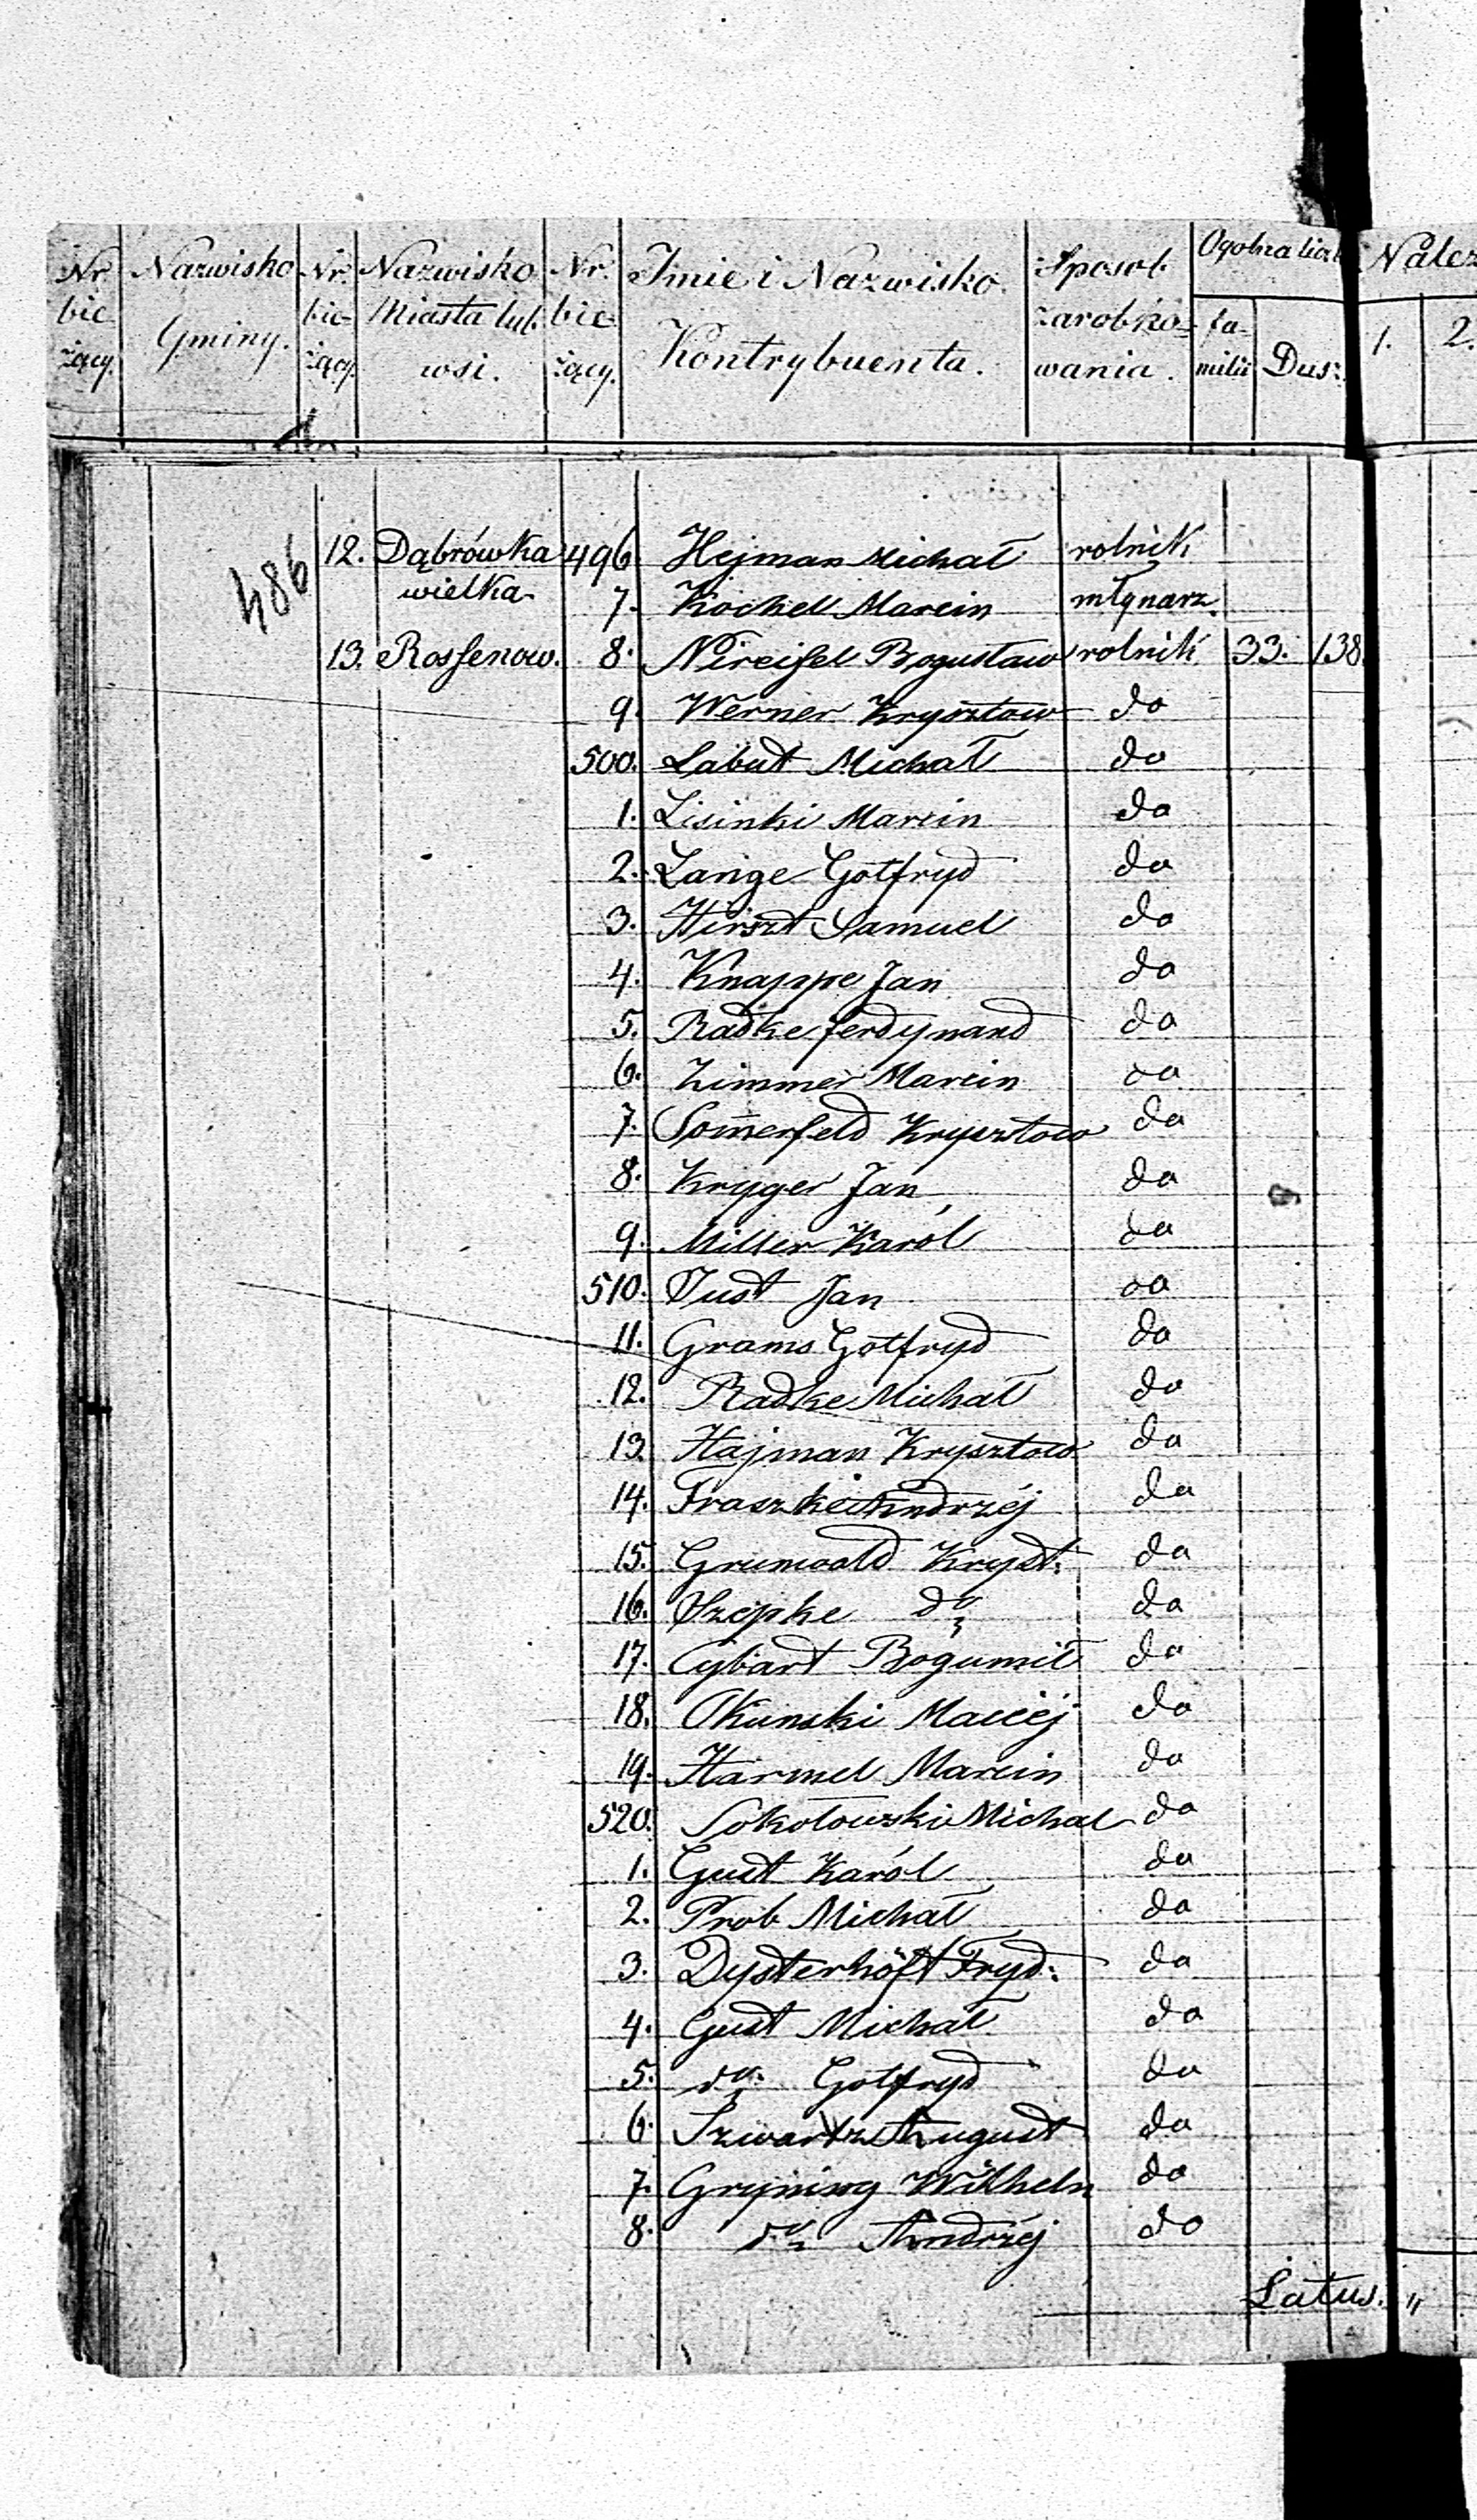 Nr. bieżący. Nazwisko Gminy. Nr. bieżący. Nazwisko Miasta lub wsi. Nr. bieżący. Imie i Nazwisko Kontrybuenta. Sposob zarobkowania. Ogolna liczb familii Dusz. Należ 1. 2.
486
12. Dąbrówka 496. Hejman Michał rolnik
wielka 7. Kochel Marcin młynarz.
13. Rossenow. 8. Nireisel Bogusław rolnik 33. 138.
9. Werner Krysztow do
500. Labut Michał do
1. Lisinki Marcin do
2. Lange Gotfryd do
3. Hirszt Samuel do
4. Knappe Jan do
5. Radke ferdynand do
6. Zimmer Marcin do
7. Som̄erfeld Krysztow do
8. Kryger Jan do
9. Miller Karól do
510. Just Jan do
11. Grams Gotfryd do
12. Radke Michał do
13. Hajman Krysztow do
14. Fraszke Andrzéj do
15. Grunwald Kryst: do
16. Szepke do do
17. Cybart Bogumił do
18. Okunski Maciéj do
19. Harmel Marcin do
520. Sokołowski Michal do
1. Gust Karól do
2. Prob Michał do
3. Dysterhöft Fryd: do
4. Gust Michał do
5. do Gotfryd do
6. Szwartz August do
7. Gryning Wilhelm do
8. do Andrzéj do
Latus. "